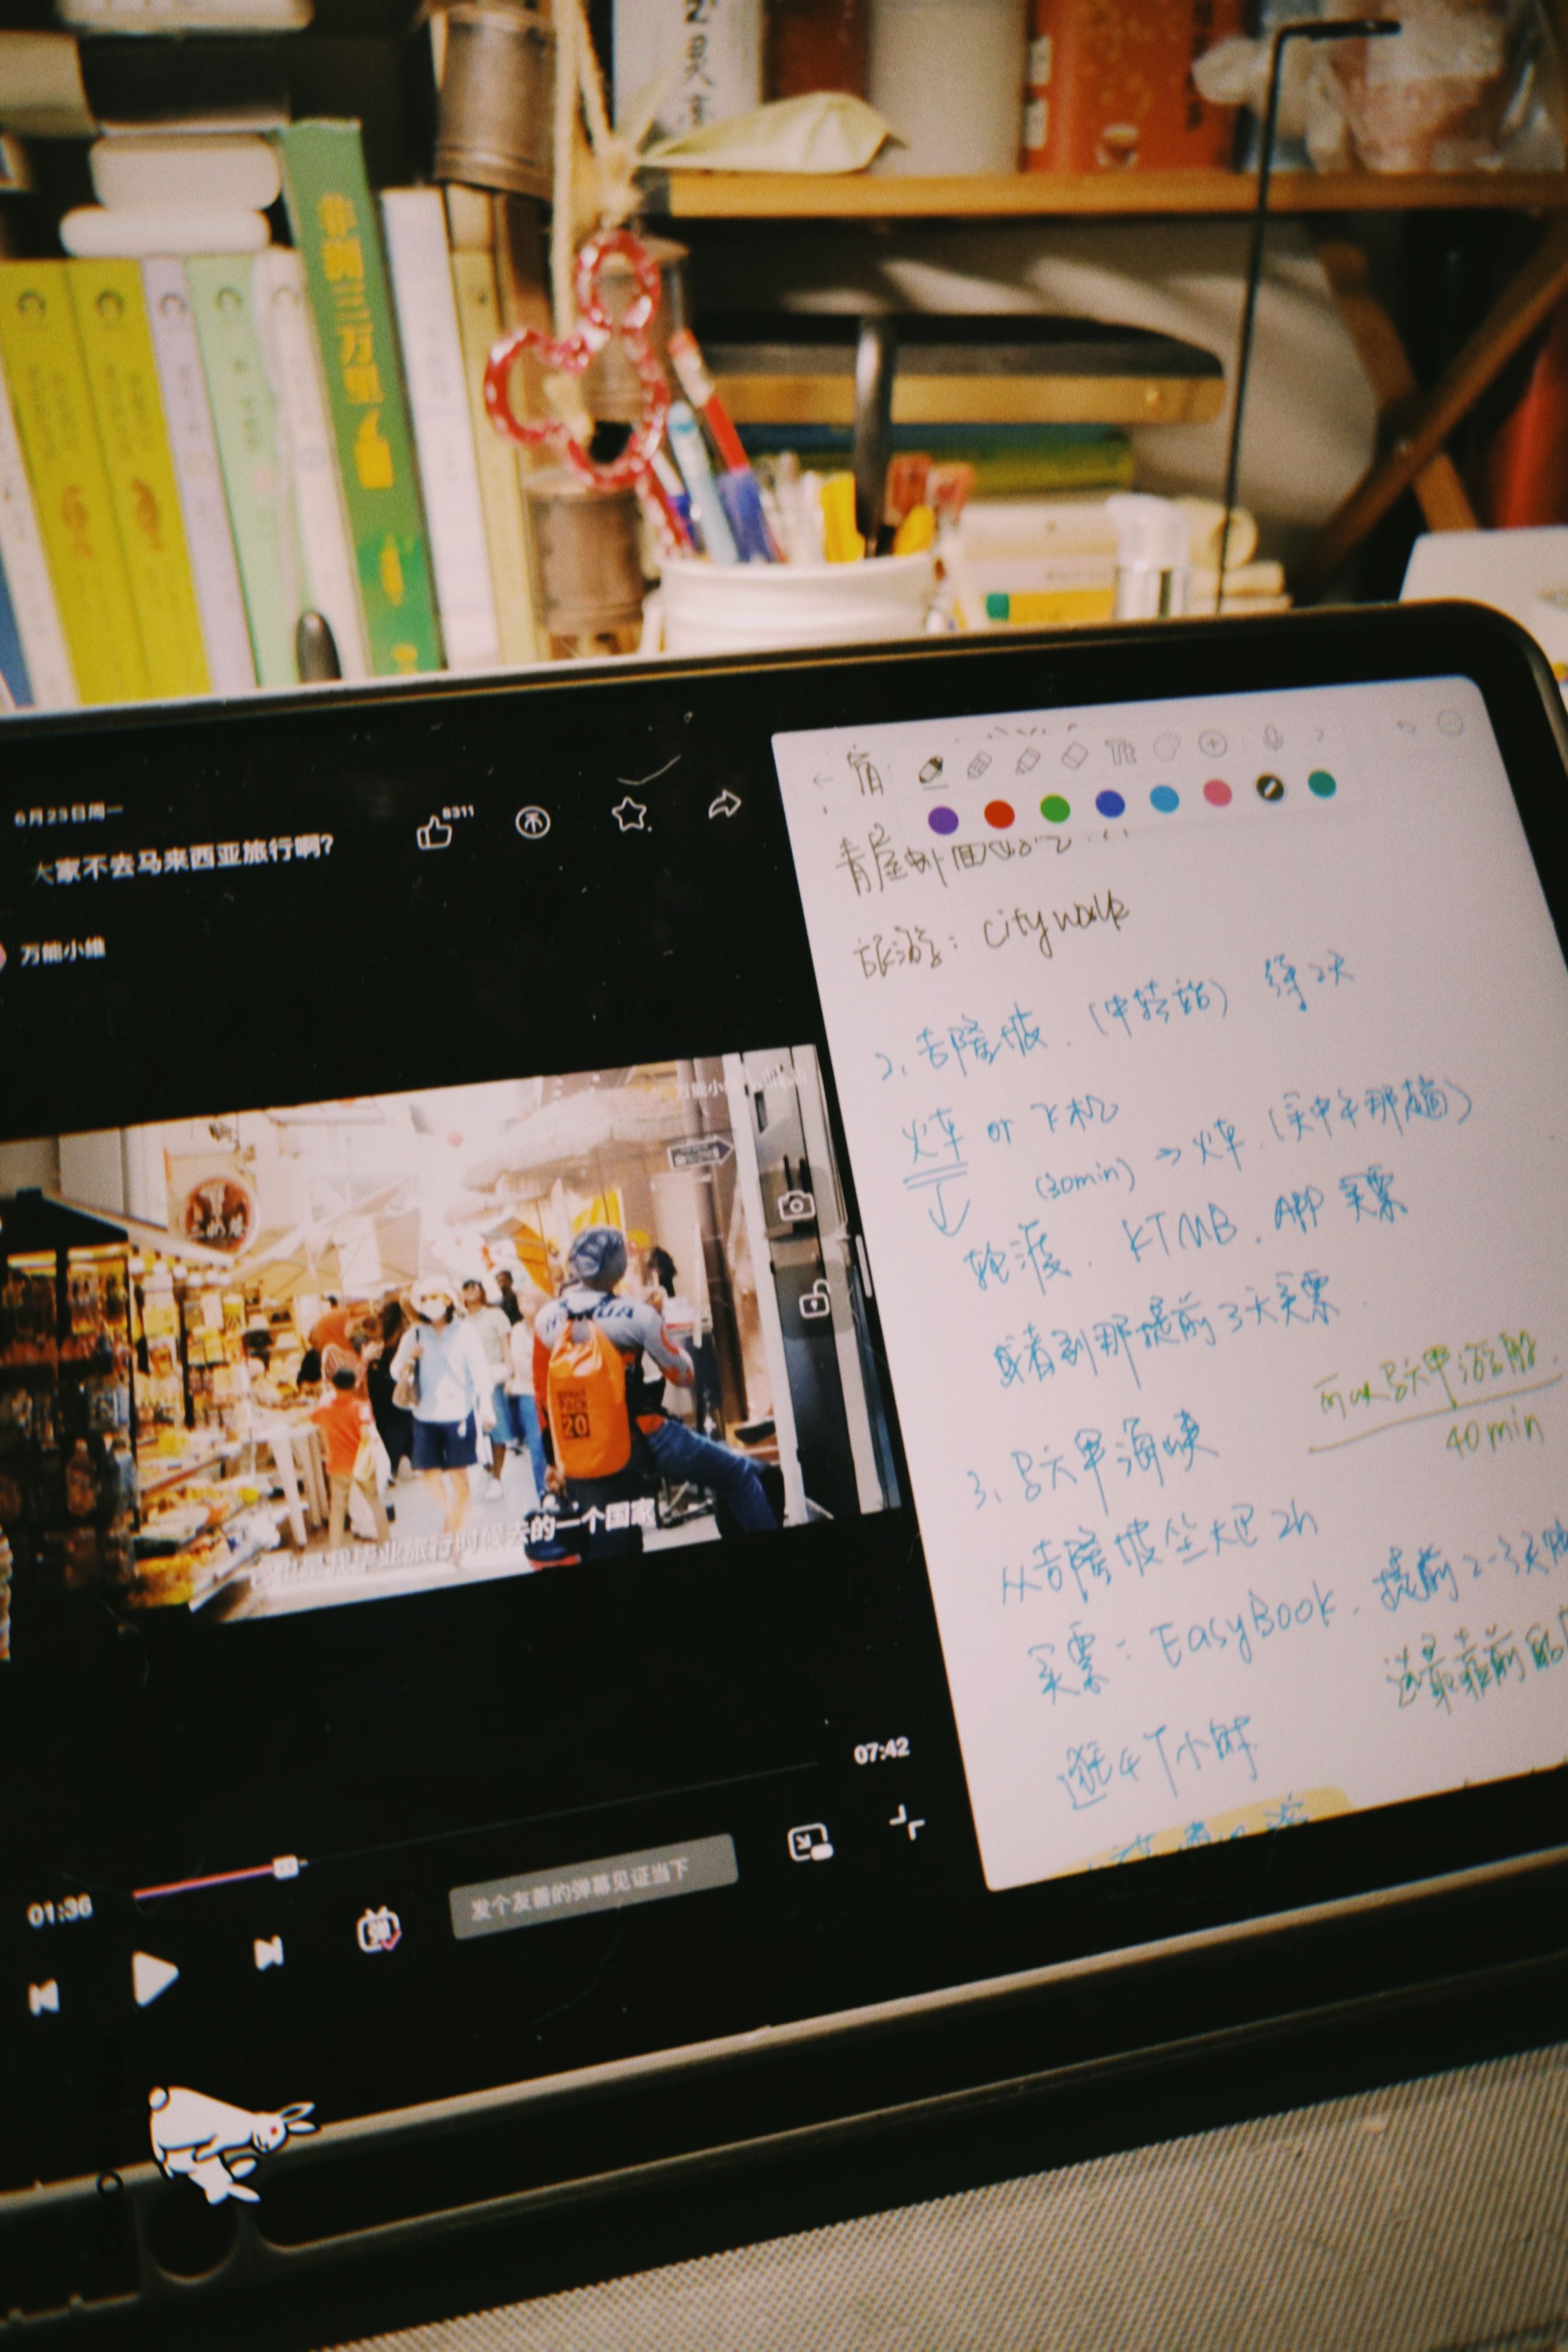 非洲三万里
6月23日周一
大家不去马来西亚旅行啊?
8311
万能小维
HONDA
20
也是我毕业旅行时候去的一个国家
07:42
01:36
弹
发个友善的弹幕见证当下
宿
Tt
旅游: city walk
2、吉隆坡.(中转站) 待2天
火车 or 飞机
(30min) → 火车.(买中午那趟)
轮渡. KTMB. APP 买票
或者到那提前3天买票.
3、马六甲海峡
可以马六甲游船.
40min
从吉隆坡坐大巴 2h
买票: EasyBook. 提前2-3天
选最靠前的
逛4个小时